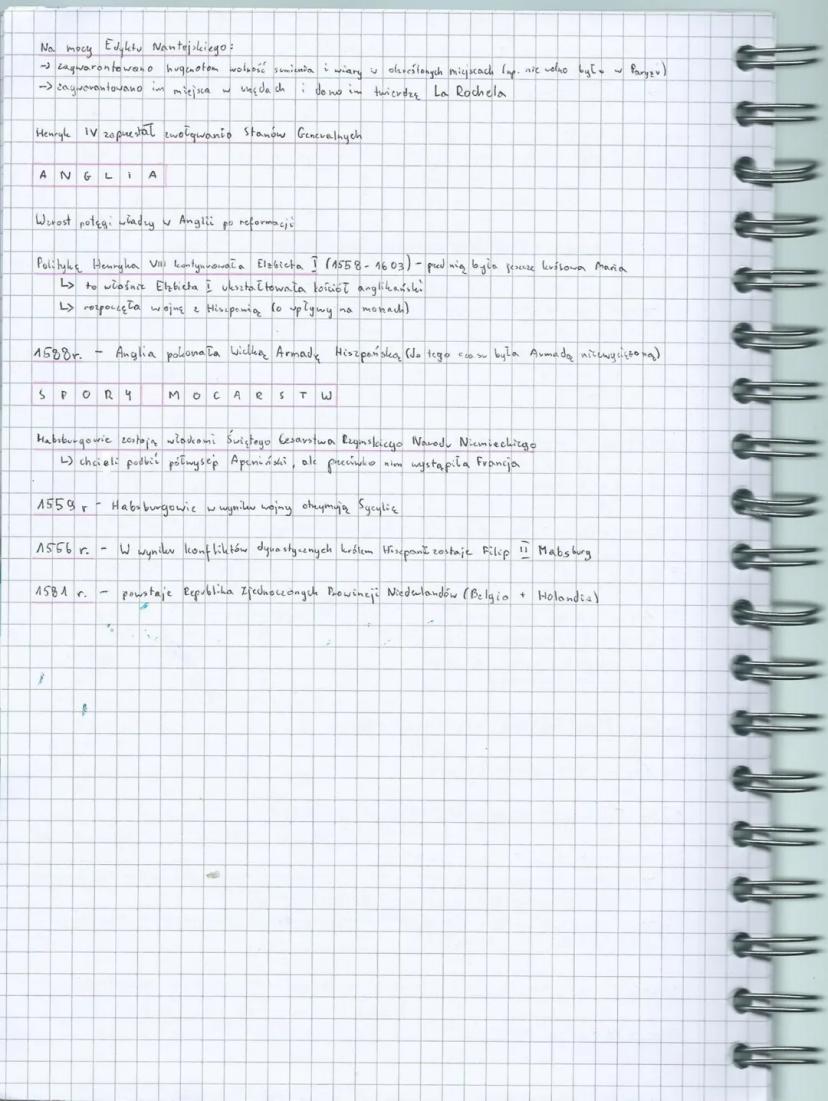 Na mocy Edyktu Nantejskiego:
-> zagwarantowano hugenotom wolność sumienia i wiary w określonych miejscach (np. nie wolno było w Paryżu)
-> zagwarantowano im miejsca w urzędach i dano im twierdzę La Rochela
Henryk IV zaprzestał zwoływania Stanów Generalnych
ANGLIA
Wzrost potęgi władzy w Anglii po reformacji
Politykę Henryka VIII kontynuowała Elżbieta I (1558 - 1603) - przed nią była jeszcze królowa Maria
↳ to właśnie Elżbieta I ukształtowała kościół anglikański
↳ rozpoczęła wojnę z Hiszpanią (o wpływy na morzach)
1588r. - Anglia pokonała Wielką Armadę Hiszpańską (do tego czasu była Armadą niezwyciężoną)
SPORY MOCARSTW
Habsburgowie zostają władcami Świętego Cesarstwa Rzymskiego Narodu Niemieckiego
↳ chcieli podbić półwysep Apeniński, ale przeciwko nim wystąpiła Francja
1559 r - Habsburgowie w wyniku wojny otrzymują Sycylię
1556 r. - W wyniku konfliktów dynastycznych królem Hiszpanii zostaje Filip II Habsburg
1581 r. - powstaje Republika Zjednoczonych Prowincji Niederlandów (Belgia + Holandia)